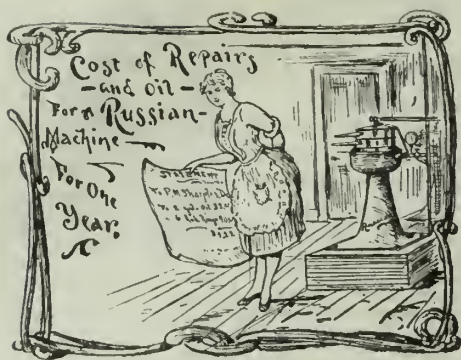 Cost of Repairs
- and Oil -
For a Russian-
Machine
For One
Year.
STATEMENT
To P.M. Sharples
To